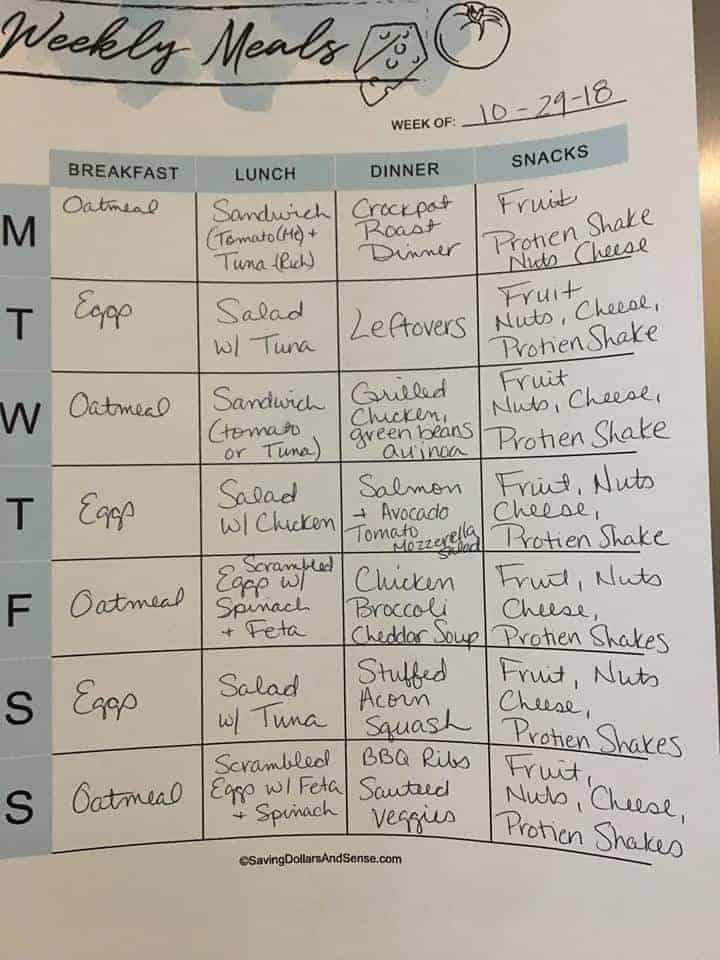 Weekly Meals
WEEK OF: 10-29-18
BREAKFAST LUNCH DINNER SNACKS
M
Oatmeal
Sandwich
(Tomato (Me) +
Tuna (Rich)
Crockpot
Roast
Dinner
Fruit
Protien Shake
Nuts Cheese
T
Eggs
Salad
w/ Tuna
Leftovers
Fruit
Nuts, Cheese,
Protien Shake
W
Oatmeal
Sandwich
(tomato
or Tuna)
Grilled
Chicken,
green beans
quinoa
Fruit
Nuts, Cheese,
Protien Shake
T
Eggs
Salad
w/ Chicken
Salmon
+ Avocado
Tomato
Mozzerella
Salad
Fruit, Nuts
Cheese,
Protien Shake
F
Oatmeal
Scrambled
Eggs w/
Spinach
+ Feta
Chicken
Broccoli
Cheddar Soup
Fruit, Nuts
Cheese,
Protien Shakes
S
Eggs
Salad
w/ Tuna
Stuffed
Acorn
Squash
Fruit, Nuts
Cheese,
Protien Shakes
S
Oatmeal
Scrambled
Eggs w/ Feta
+ Spinach
BBQ Ribs
Sauteed
Veggies
Fruit,
Nuts, Cheese,
Protien Shakes
©SavingDollarsAndSense.com